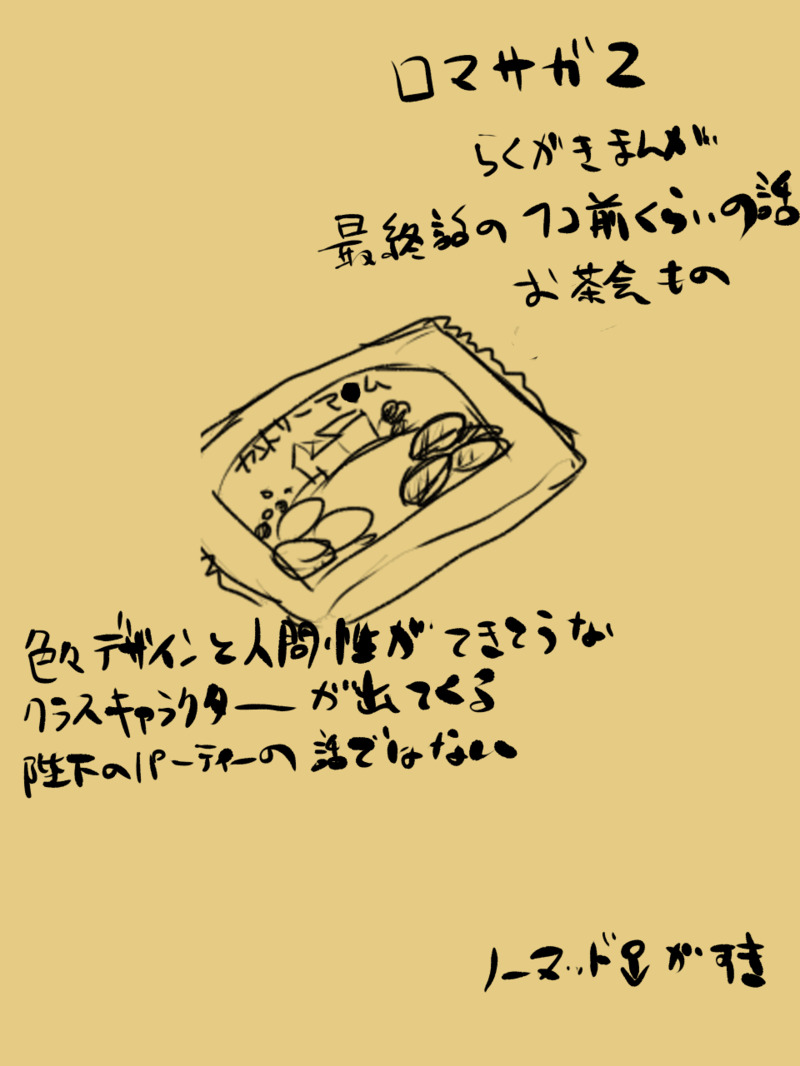 ロマサガ2
らくがきまんが
最終話の1つ前くらいの話
お茶会もの
カントリーマ●ム
色々デザインと人間性ができてうな
クラスキャラクターが出てくる
陛下のパーティーの話ではない
ノーマッド♀がすき